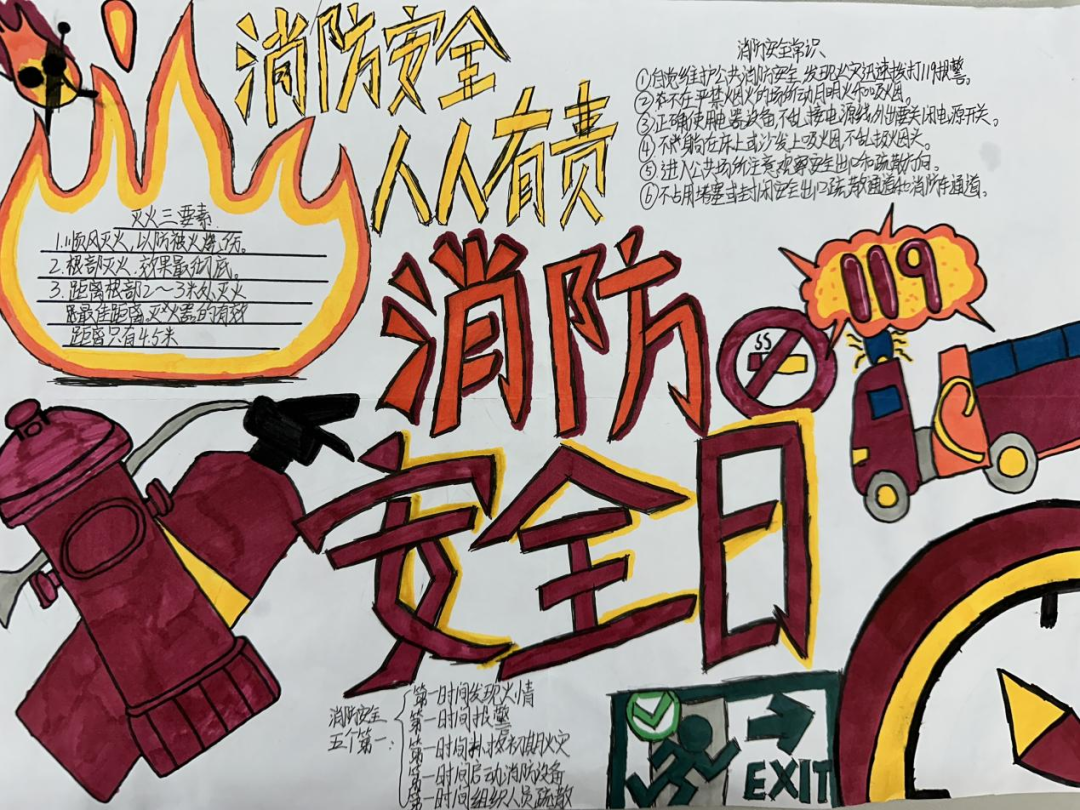 消防安全
人人有责
消防安全常识
①自觉维护公共消防安全,发现火灾迅速拨打119报警。
②不在严禁烟火的场所动用明火和吸烟。
③正确使用电器设备,不乱接电源线,外出要关闭电源开关。
④不躺在床上或沙发上吸烟,不乱扔烟头。
⑤进入公共场所注意观察安全出口和疏散方向。
⑥不占用堵塞或封闭安全出口疏散通道和消防车通道。
灭火三要素
1.顺风灭火,以防被火烧伤。
2.根部灭火,效果最彻底。
3.距离根部2~3米处灭火
是最佳距离,灭火器的有效
距离只有4.5米
消防
安全日
119
消防安全
五个第一:
第一时间发现火情
第一时间报警
第一时间扑救初期火灾
第一时间启动消防设备
第一时间组织人员疏散
EXIT